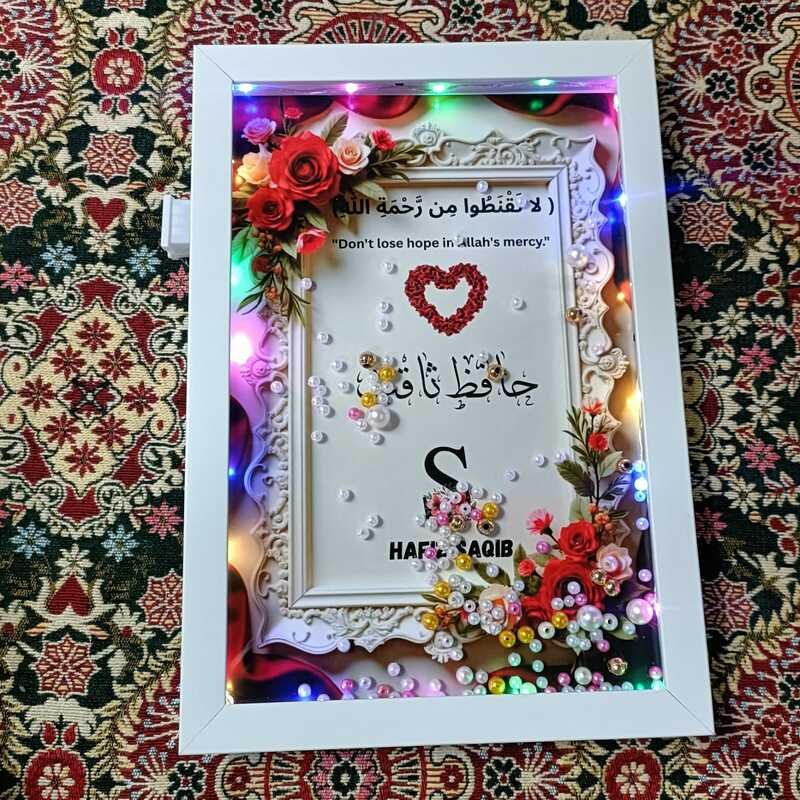 ( لا تَقْنَطُوا مِن رَّحْمَةِ اللَّهِ)
"Don't lose hope in Allah's mercy."
حافظ ثاقب
S
HAFIZ SAQIB